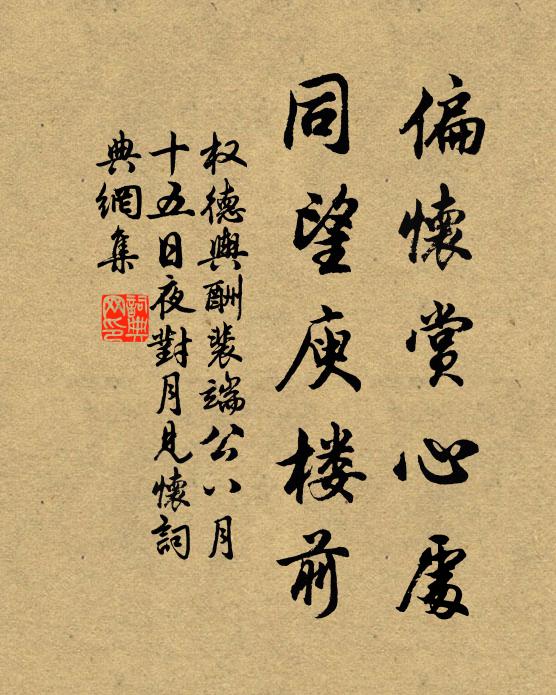 偏懷賞心處
同望庾楼前
权德輿酬裴端公八月
十五日夜對月見懷詞
典網集
詞典
网印